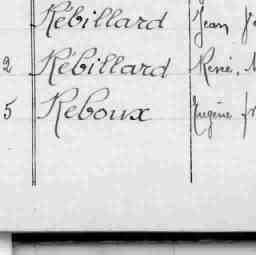 Rébillard Jean
2 Rébillard René,
5 Reboux Eugène